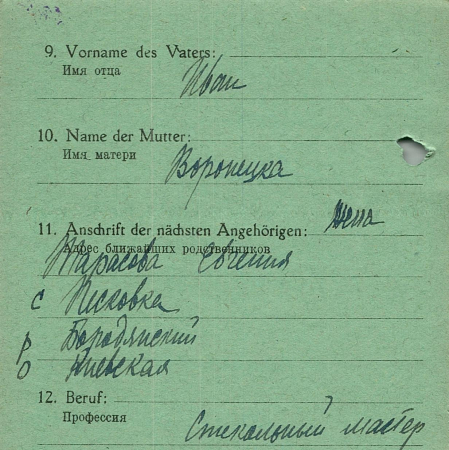 9. Vorname des Vaters:
Имя отца
Иван
10. Name der Mutter:
Имя матери
Воронецка
11. Anschrift der nächsten Angehörigen: жена
Адрес ближайших родственников
Тарасова Евгения
с Песковка
р Бородянский
о Киевская
12. Beruf:
Профессия
Стекольный мастер